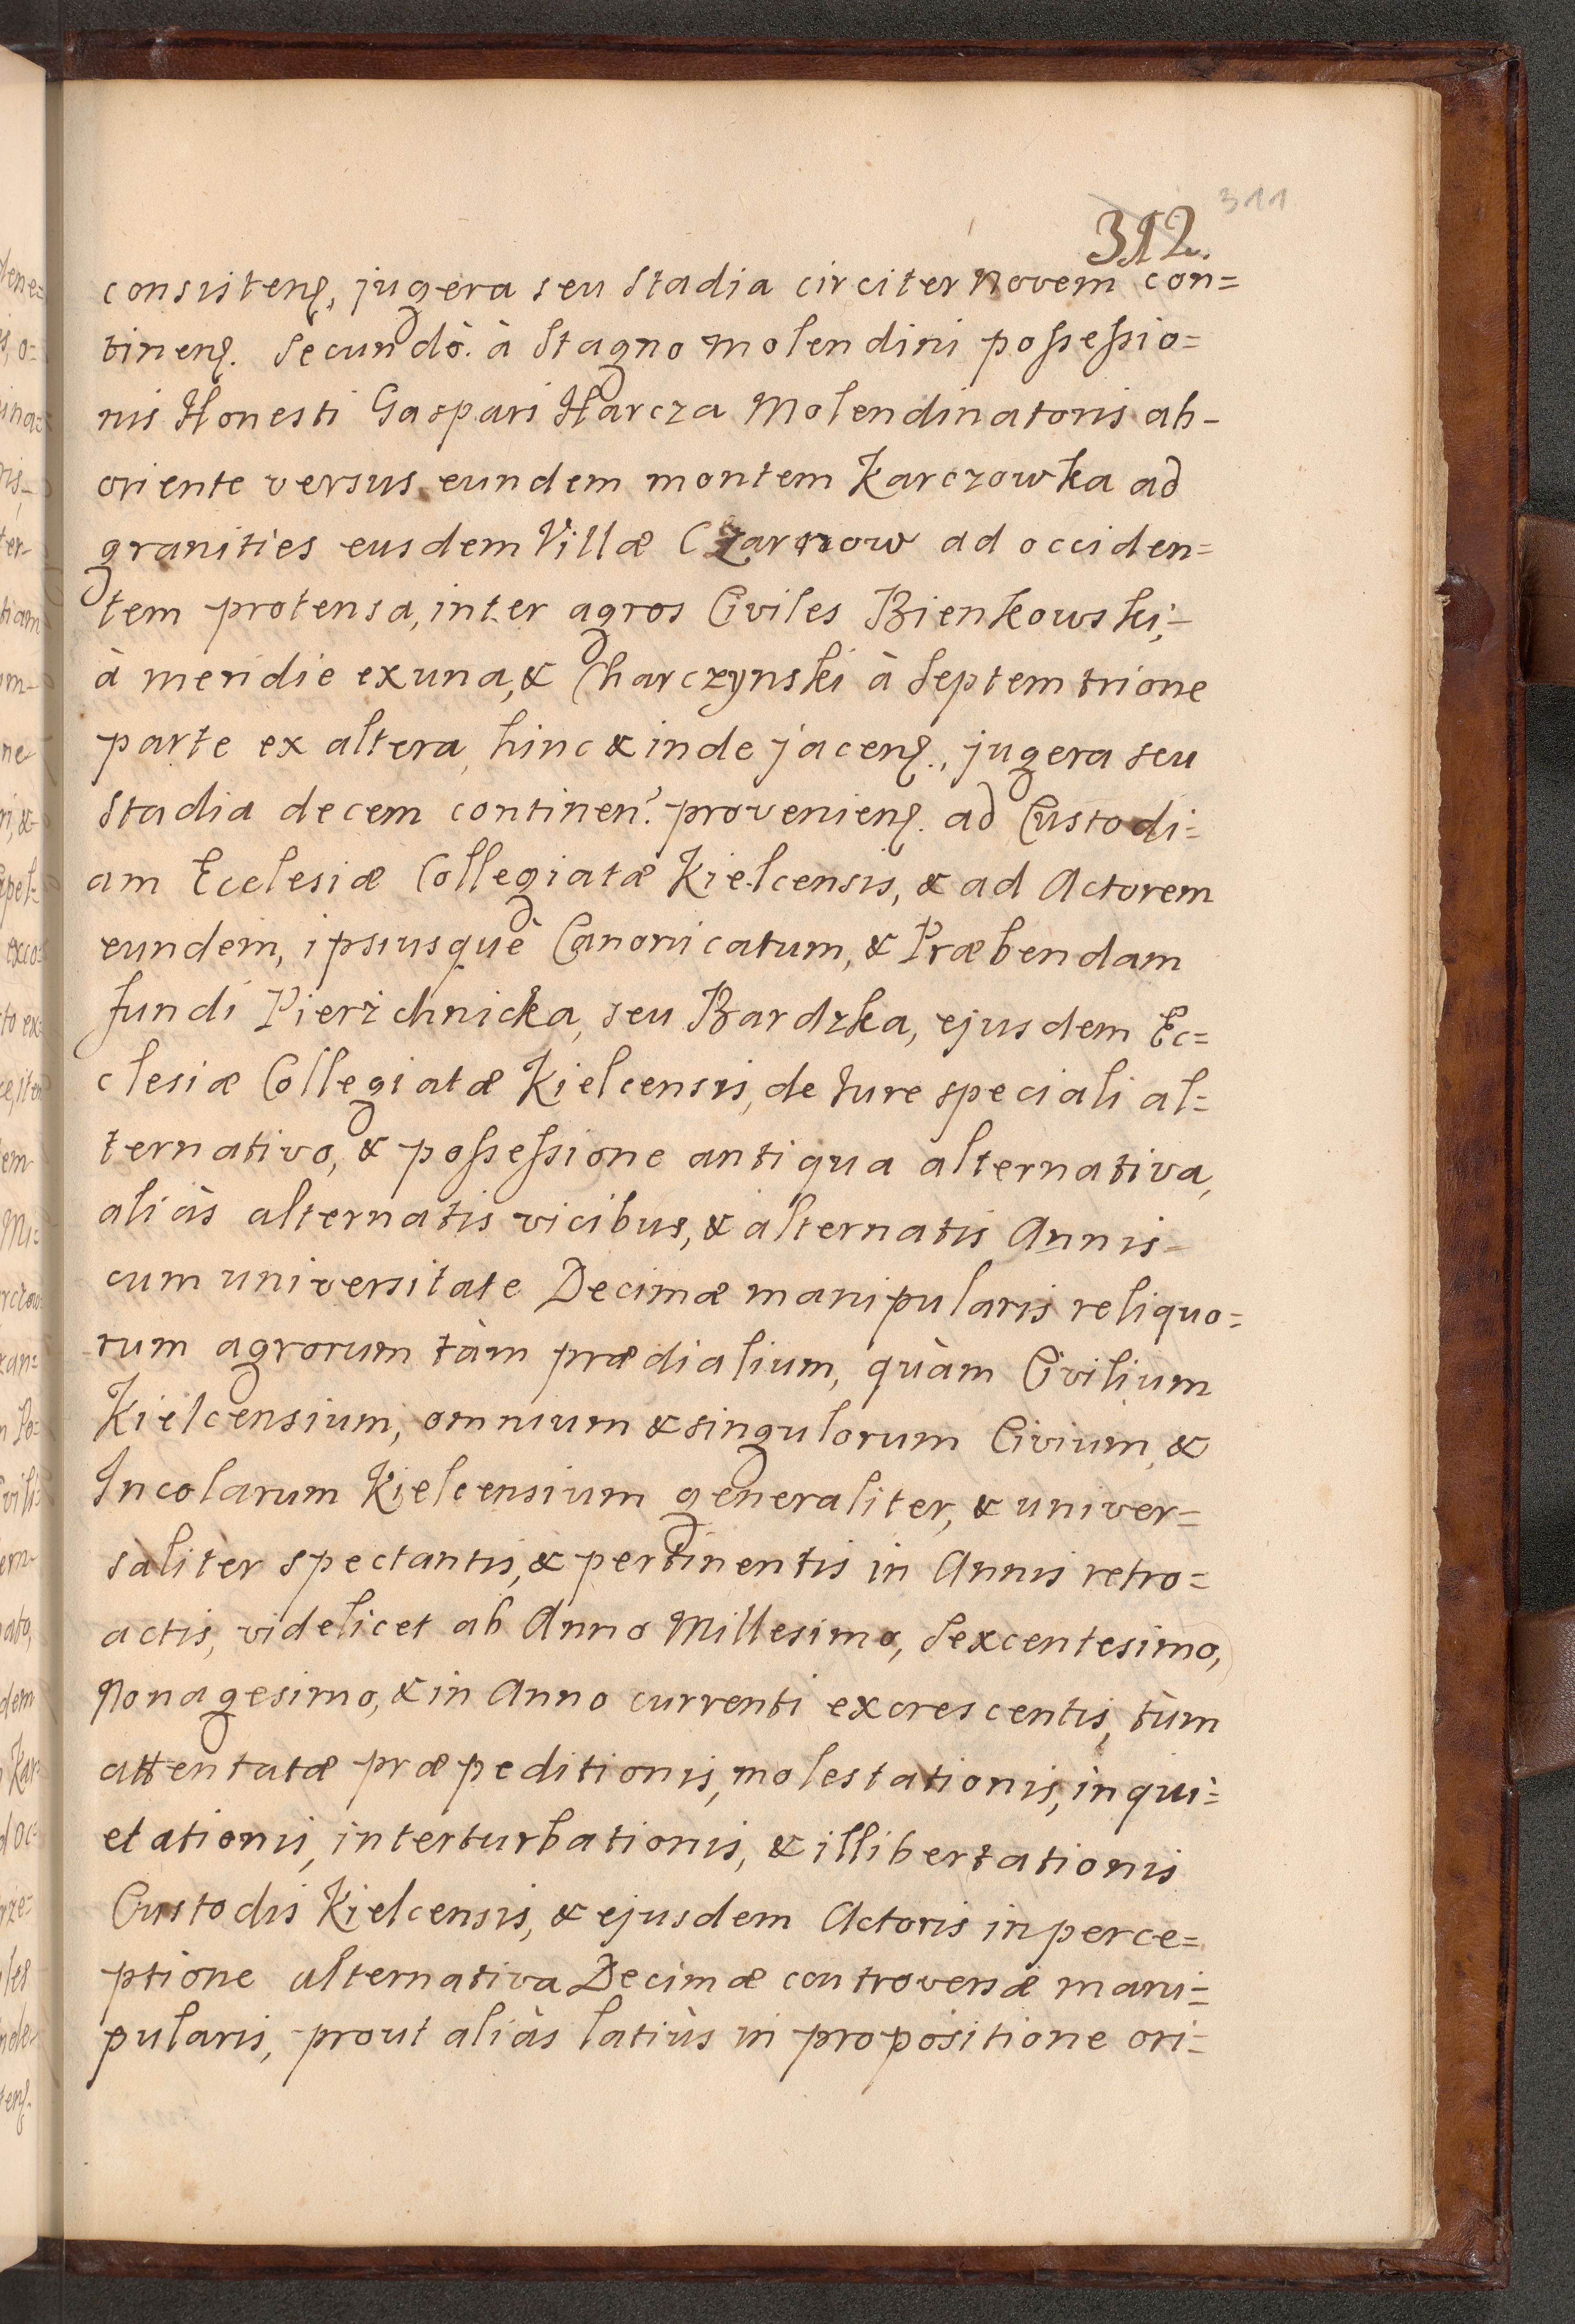 311
312.
consisten., jugera seu Stadia circiter Novem con=
tinen. Secundò. à Stagno Molendini possessio=
nis Honesti Gaspari Harcza Molendinatoris ab-
oriente versus eundem montem Karczowka ad
granities eusdem Villæ Czarnow ad occiden=
tem protensa, inter agros Civiles Bienkowski,-
à meridie ex una, & Charczynski à Septemtrione
parte ex altera, hinc & inde jacen., jugera seu
Stadia decem continen. provenien. ad Custodi=
am Ecclesiæ Collegiatæ Kielcensis, & ad Actorem
eundem, ipsiusquè Canonicatum, & Præbendam
fundi Pierzchnicka, seu Bardzka, ejusdem Ec=
clesiæ Collegiatæ Kielcensis, de Jure speciali al=
ternativo, & possessione antiqua alternativa,
aliàs alternatis vicibus, & alternatis Annis-
cum universitate Decimæ manipularis reliquo=
rum agrorum tàm prædialium, quàm Civilium
Kielcensium, omnium & singulorum Civium, &
Incolarum Kielcensium generaliter, & univer=
saliter spectantis, & pertinentis in Annis retro=
actis, videlicet ab Anno Millesimo, Sexcentesimo,
Nonagesimo, & in Anno currenti excrescentis, tùm
attentatæ præpeditionis, molestationis, inqui=
etationis, interturbationis, & illibertationis
Custodis Kielcensis, & ejusdem Actoris in perce=
ptione alternativa Decimæ controversæ mani=
pularis, prout aliàs latiùs in propositione ori=